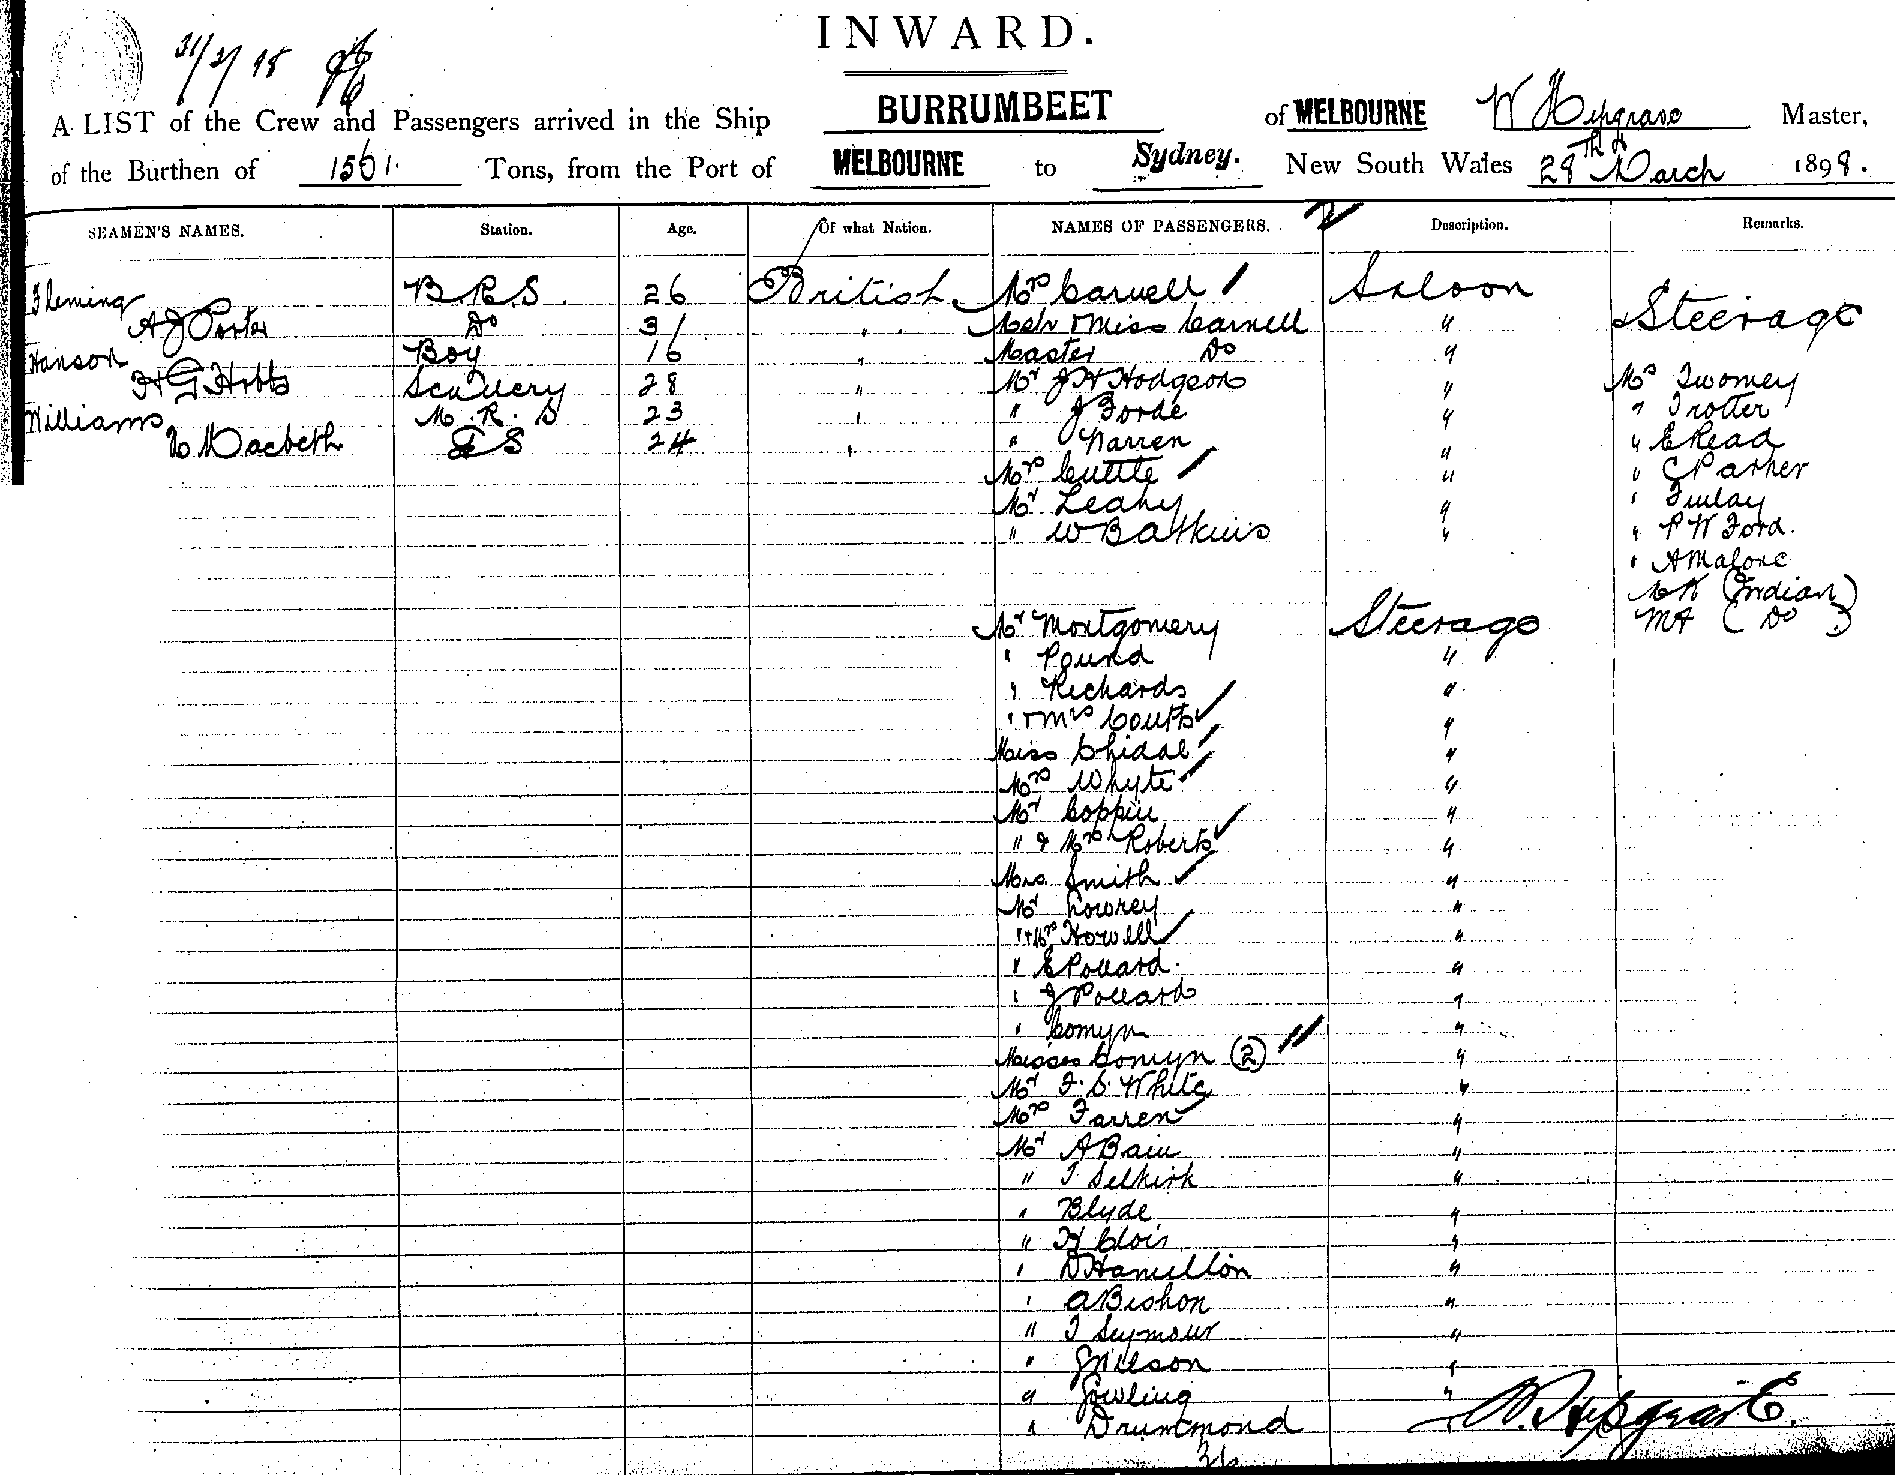 INWARD.
31/3/98
A LIST of the Crew and Passengers arrived in the Ship BURRUMBEET of MELBOURNE W Hipgrave Master,
of the Burthen of 1561. Tons, from the Port of MELBOURNE to Sydney. New South Wales 28th of March 1898.
SEAMEN'S NAMES. Station. Age. Of what Nation. NAMES OF PASSENGERS. Description. Remarks.
Fleming B.R.S. 26 British Mrs Carnell Saloon
A J Porter Do 31 " & Miss Carnell " Steerage
Hanson Boy 16 " Master Do "
H G Hobbs Scullery 28 " Mr J H Hodgson " Mr Twomey
Williams M.R.S 23 " " J Forde " " Trotter
Macbeth S 24 " " Warren " " E Read
Mrs Cuttle " " C Parker
Mr Leahy " " Finlay
" W B Atkins " " P W Ford.
" A Malone
(Indian)
Mr Montgomery Steerage (Do)
" Pound "
" Richards "
" & Mrs Coutts "
Miss "
Mrs Whyte "
Mr Coppin "
" & Mrs Roberts "
Mrs Smith "
Mr Lowrey "
" & Mrs Howell "
" E Pollard. "
" J Pollard "
" Comyn "
Misses Comyn (2) "
Mr F. S. White "
Mrs Farren "
Mr A Bain "
" T Selkirk "
" Blyde "
" H Clois "
" D Hamilton "
" A Bishop "
" T Seymour "
" J Nilson "
" Gosling "
" Drummond
W. Hipgrave.